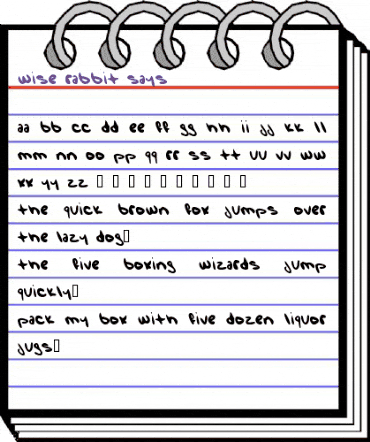 wise rabbit says
aa bb cc dd ee ff gg hh ii jj kk ll
mm nn oo pp qq rr ss tt uu vv ww
xx yy zz □ □ □ □ □ □ □ □ □ □
the quick brown fox jumps over
the lazy dog□
the five boxing wizards jump
quickly□
pack my box with five dozen liquor
jugs□